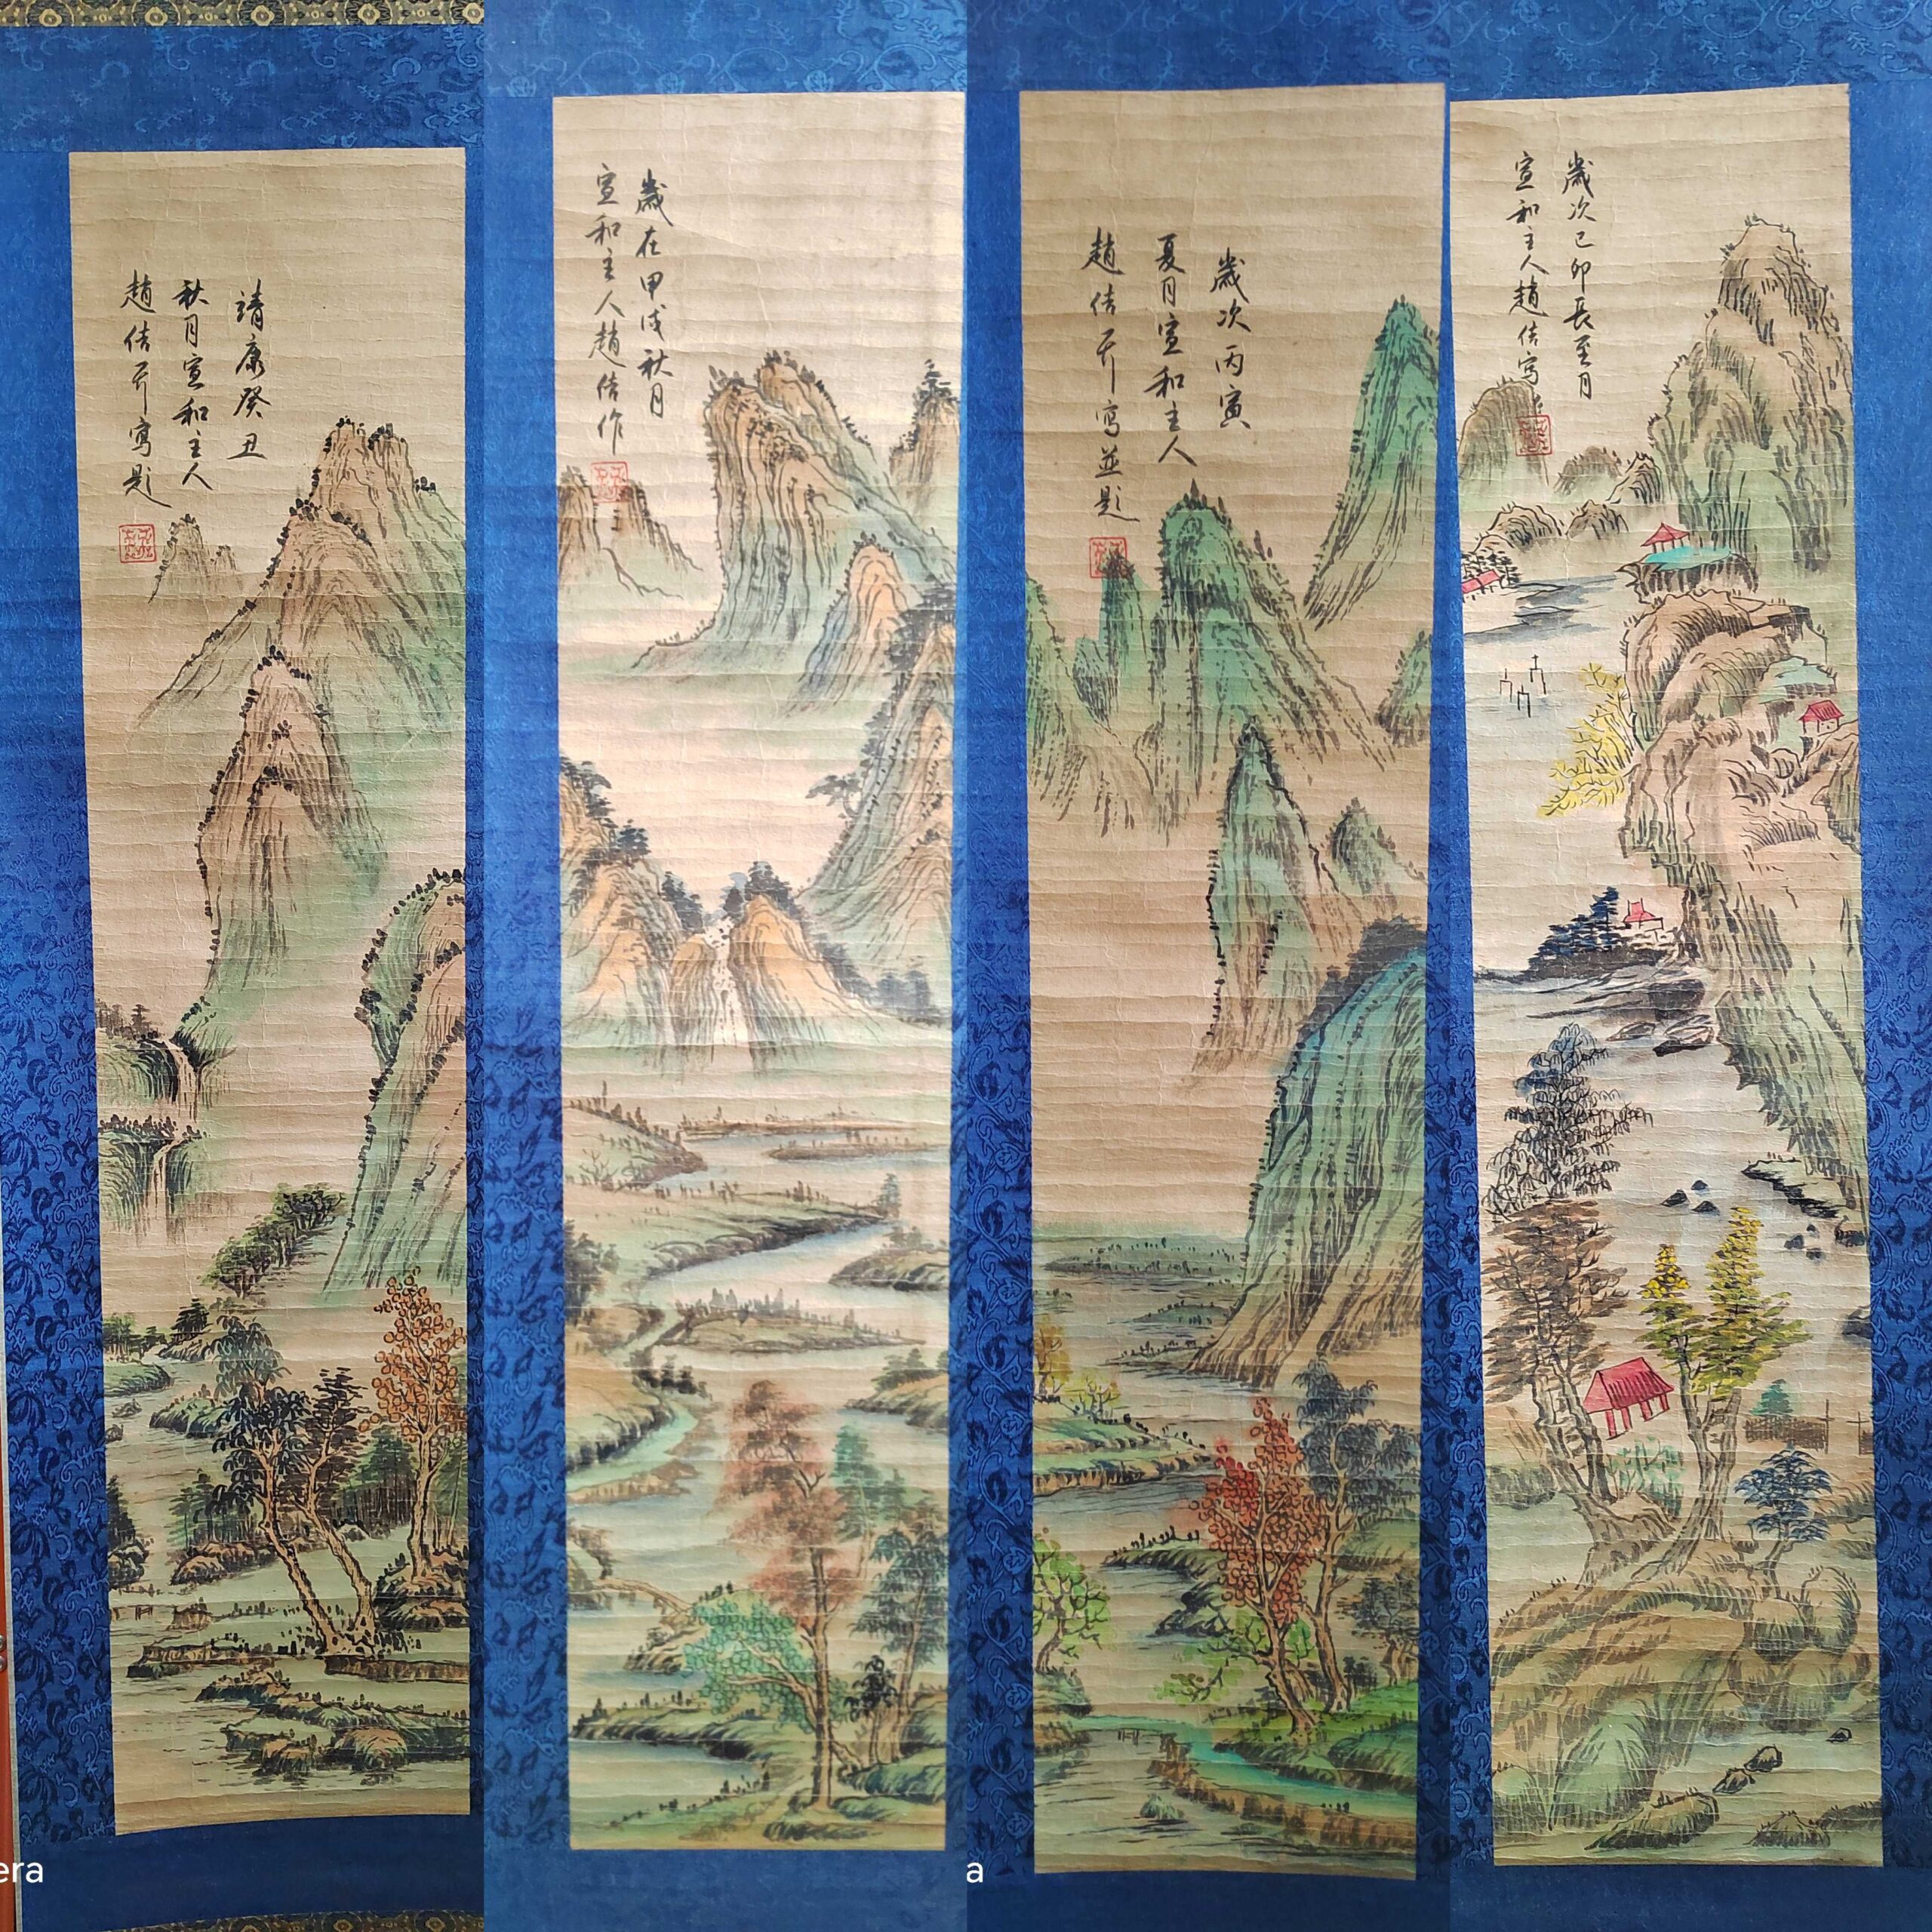 靖康癸丑
秋月宣和主人
趙佶
寫題
歲在甲戌秋月
宣和主人趙佶作
歲次丙寅
夏月宣和主人
趙佶
寫並題
歲次己卯長至月
宣和主人趙佶写
era
a